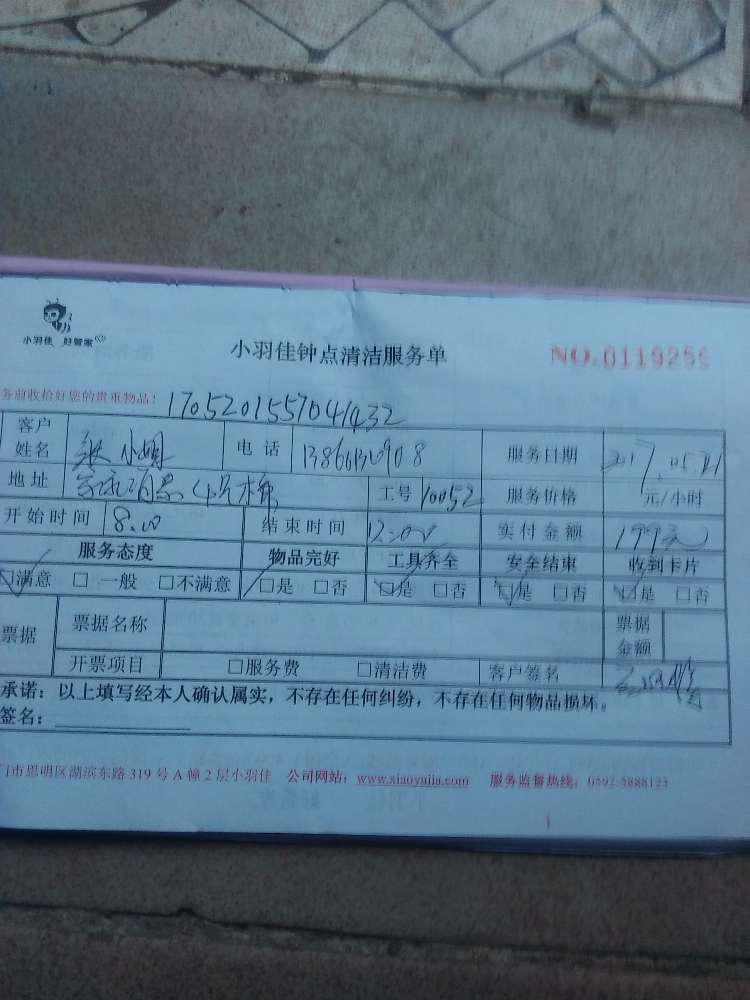 小羽佳 好管家
小羽佳钟点清洁服务单
NO.0119259
务前收拾好您的贵重物品! 1705201557041432
客户姓名 张小娟 电话 服务日期 2017.05.21
地址 工号 10052 服务价格 元/小时
开始时间 8.00 结束时间 12:00 实付金额 199元
服务态度 物品完好 工具齐全 安全结束 收到卡片
☑满意 □一般 □不满意 ☑是 □否 ☑是 □否 ☑是 □否 ☑是 □否
票据 票据名称 票据金额
开票项目 □服务费 □清洁费 客户签名
承诺:以上填写经本人确认属实,不存在任何纠纷,不存在任何物品损坏。
签名:
门市思明区湖滨东路319号A幢2层小羽佳 公司网站:www.xiaoyujia.com 服务监督热线:0592-5888123